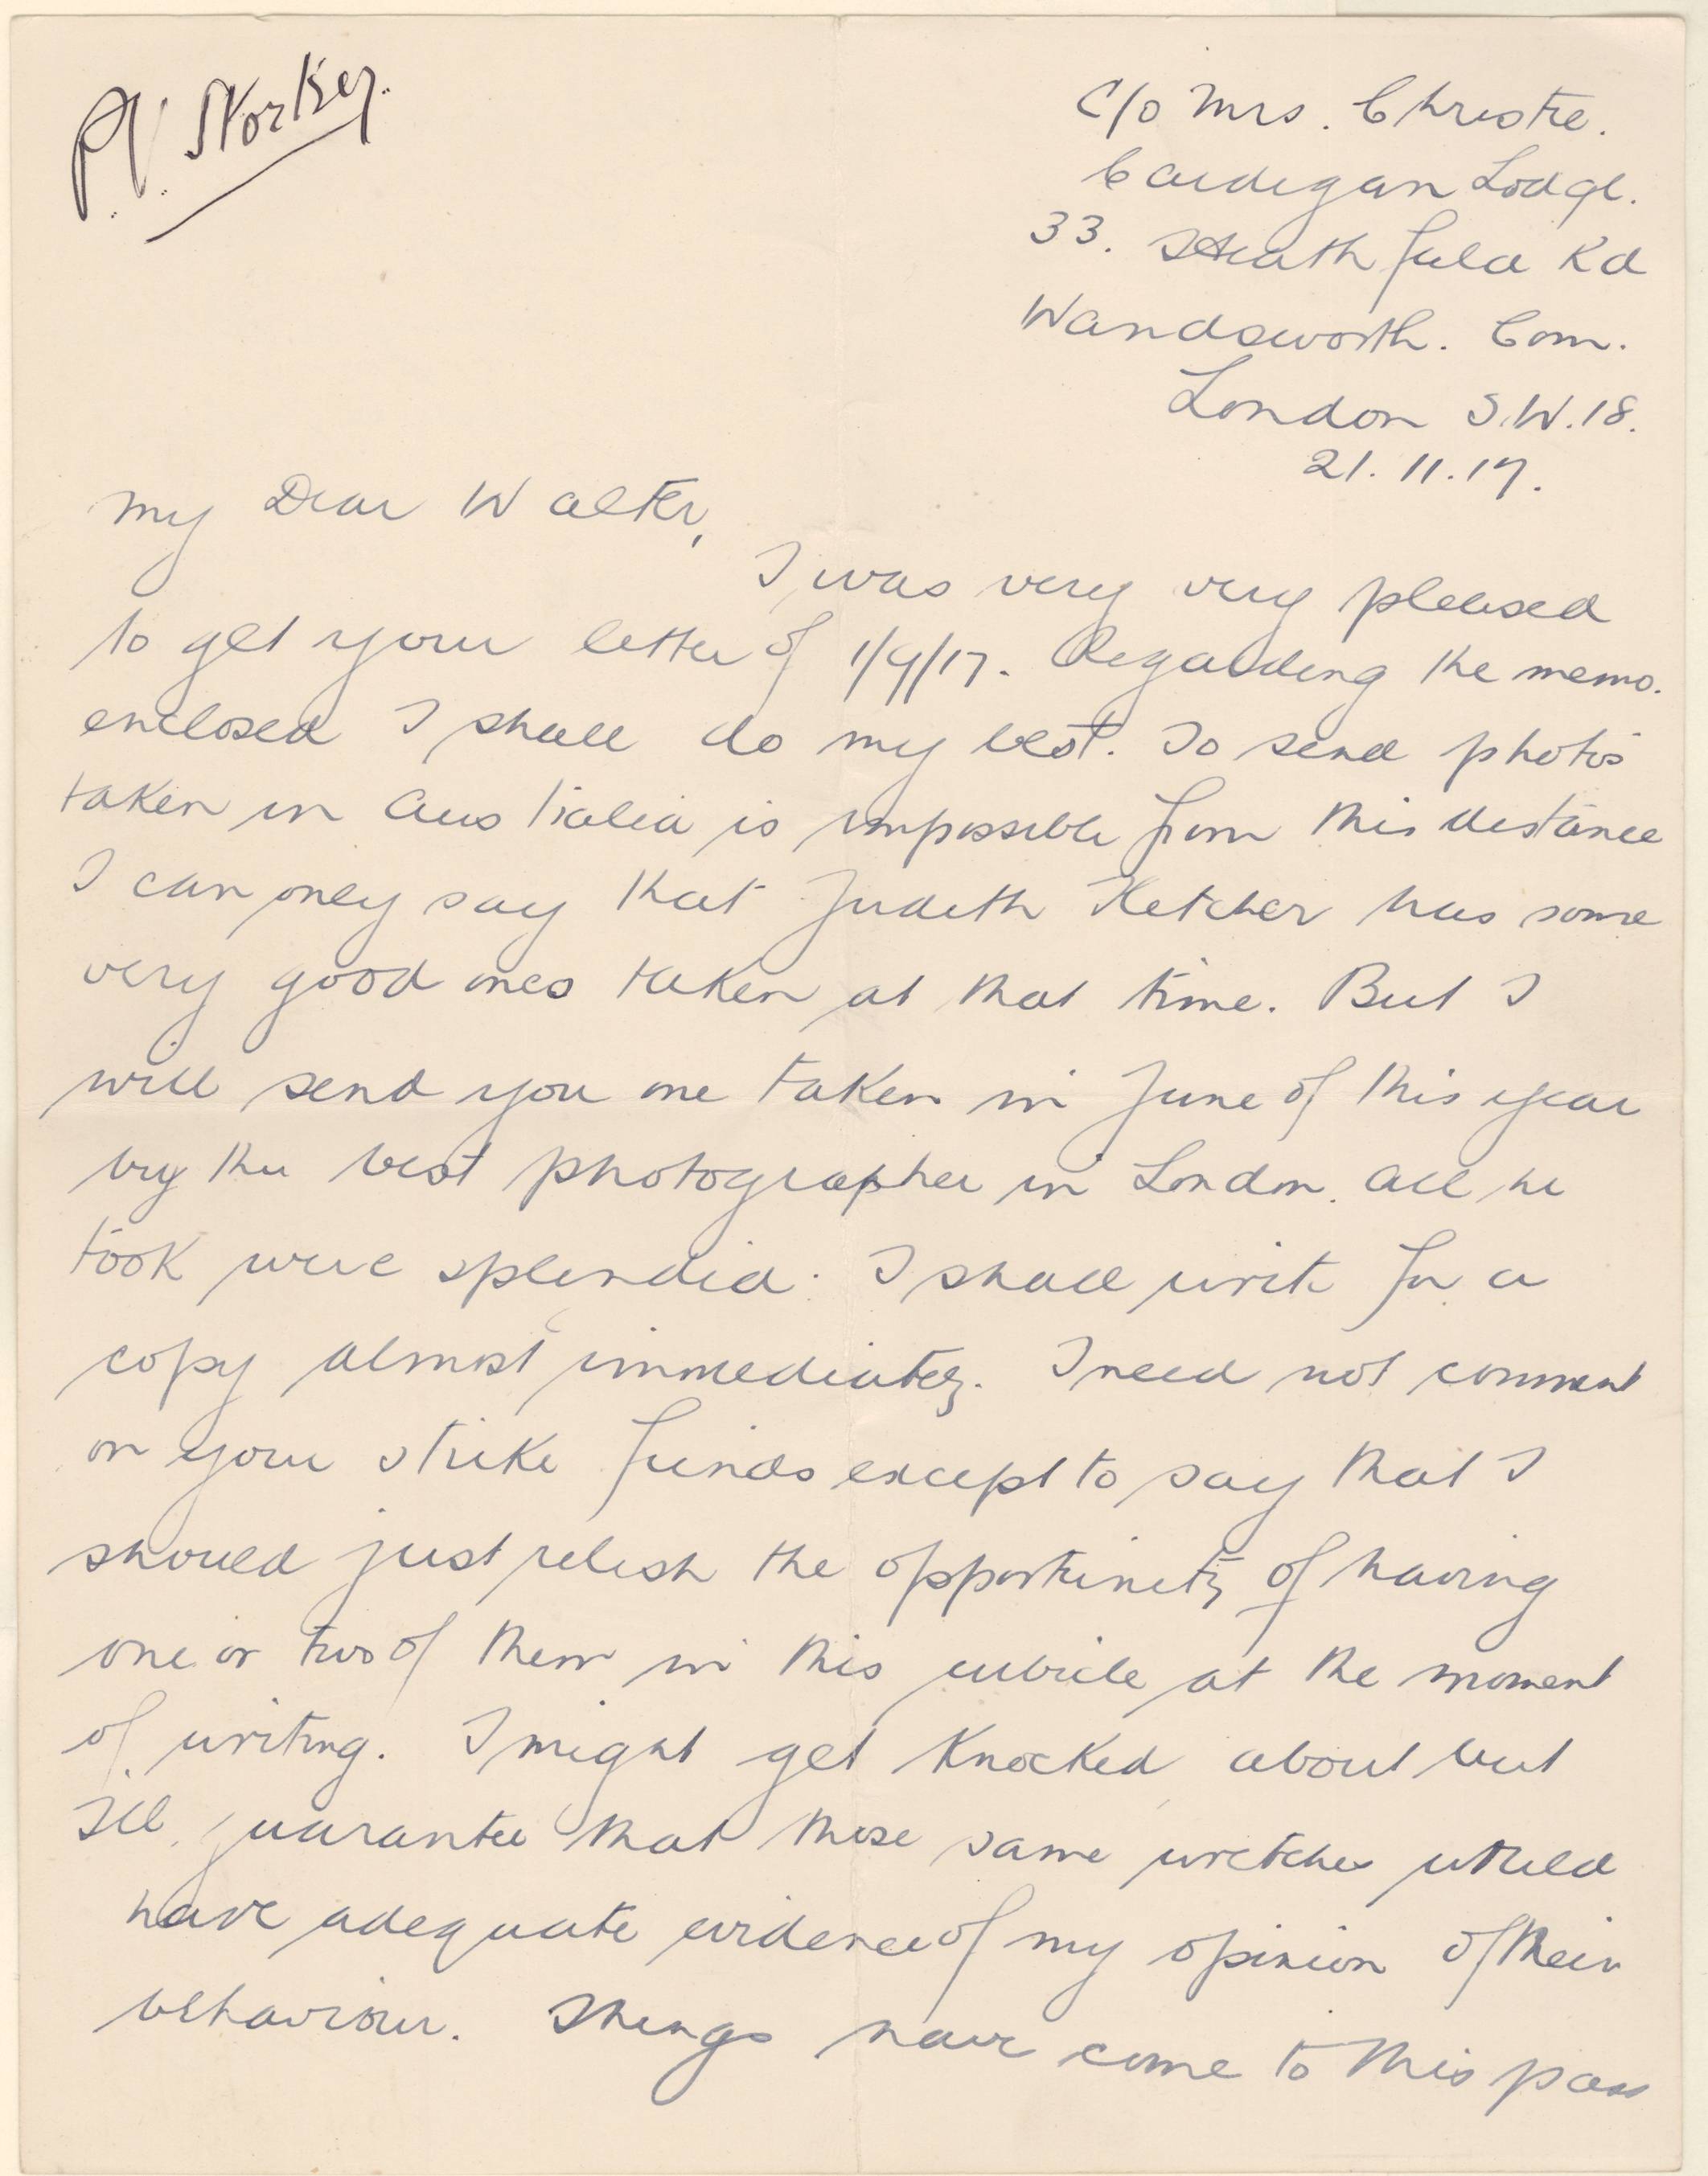 P.V. Storkey.
C/o Mrs. Christie.
Cardigan Lodge.
33. Heathfield Rd
Wandsworth. Com.
London S.W.18.
21.11.17.
My Dear Walter,
I was very very pleased
to get your letter of 1/9/17. Regarding the memo.
enclosed I shall do my best. To send photos
taken in Australia is impossible from this distance
I can only say that Judith Fletcher has some
very good ones taken at that time. But I
will send you one taken in June of this year
by the best photographer in London. All he
took were splendid. I shall write for a
copy almost immediately. I need not comment
on your strike funds except to say that I
should just relish the opportunity of having
one or two of them in this cubicle at the moment
of writing. I might get knocked about but
I'll guarantee that those same wretches would
have adequate evidence of my opinion of their
behaviour. Things have come to this pass